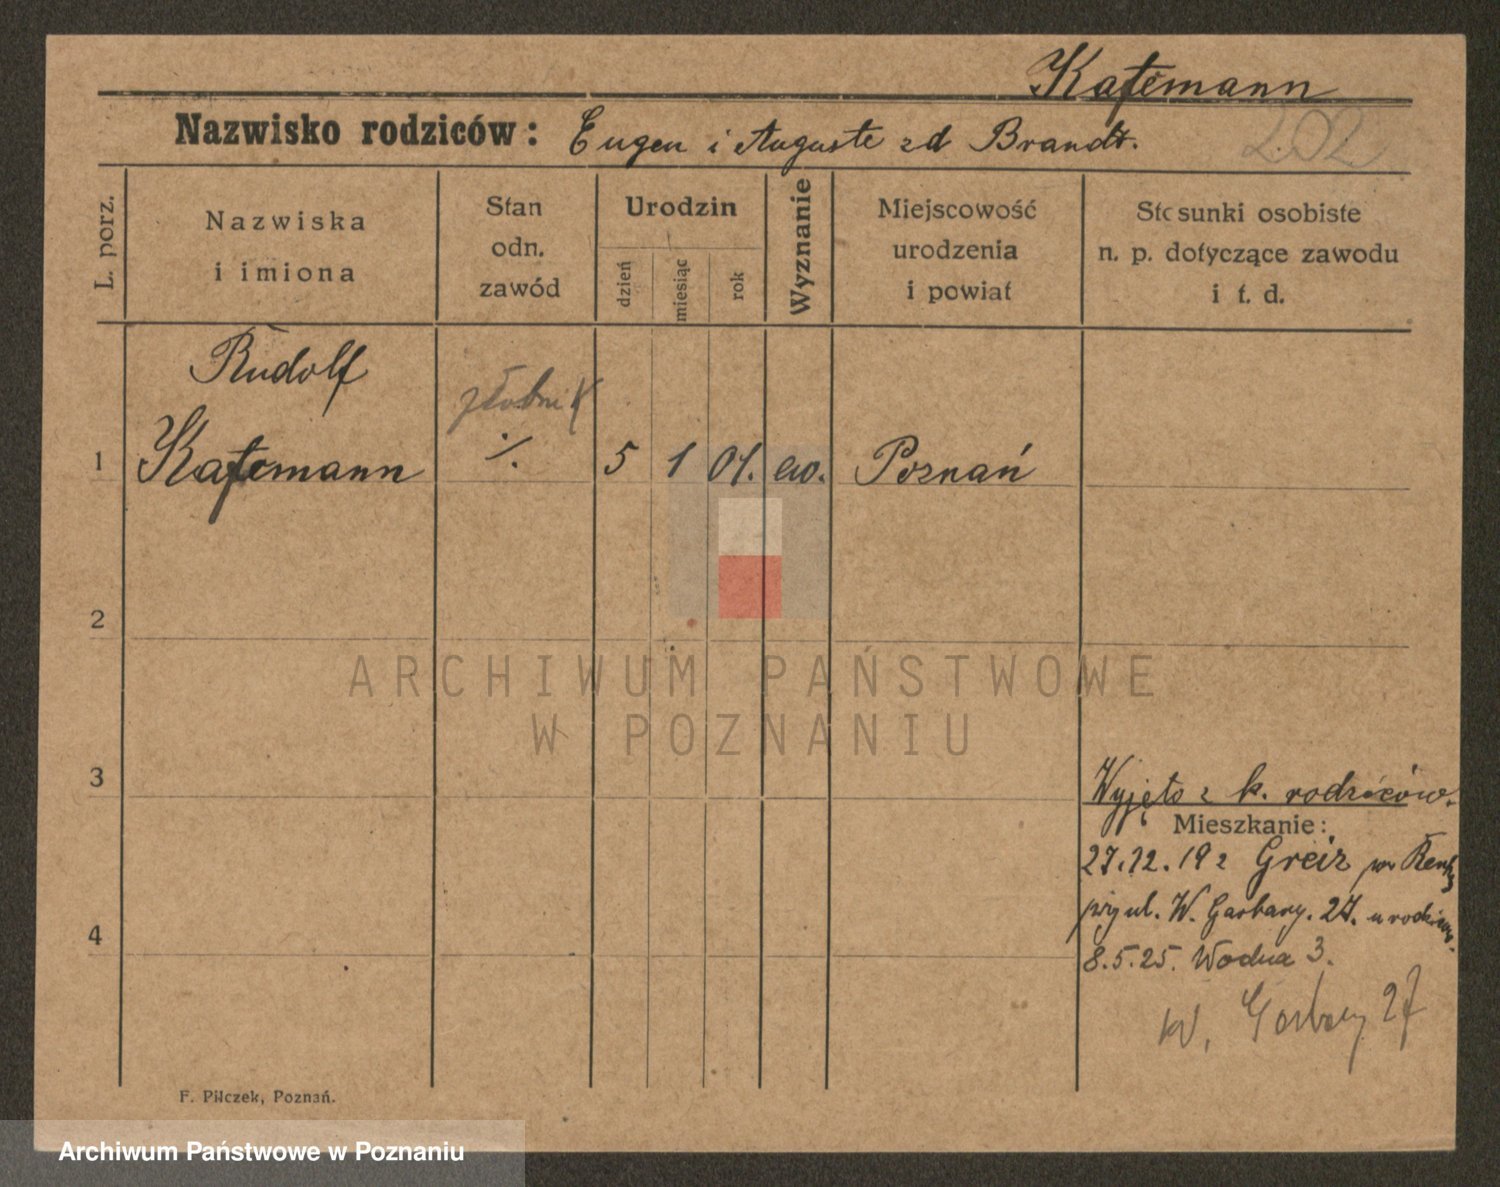 Katemann
Nazwisko rodziców: Eugen i Auguste zd Brandt.
202
L. porz.
Nazwiska
i imiona
Stan
odn.
zawód
Urodzin
dzień
miesiąc
rok
Wyznanie
Miejscowość
urodzenia
i powiat
Stosunki osobiste
n. p. dotyczące zawodu
i t. d.
Rudolf
złotnik
1 Katemann ./. 5 1 01. ew. Poznań
2
ARCHIWUM PAŃSTWOWE
W POZNANIU
3
Wyjęto z k. rodziców.
Mieszkanie:
27.12.19 z Greiz
przy ul. W. Garbary. 27. u rodziców.
4
8.5.25. Wodna 3.
W. Garbary 27
F. Pilczek, Poznań.
Archiwum Państwowe w Poznaniu